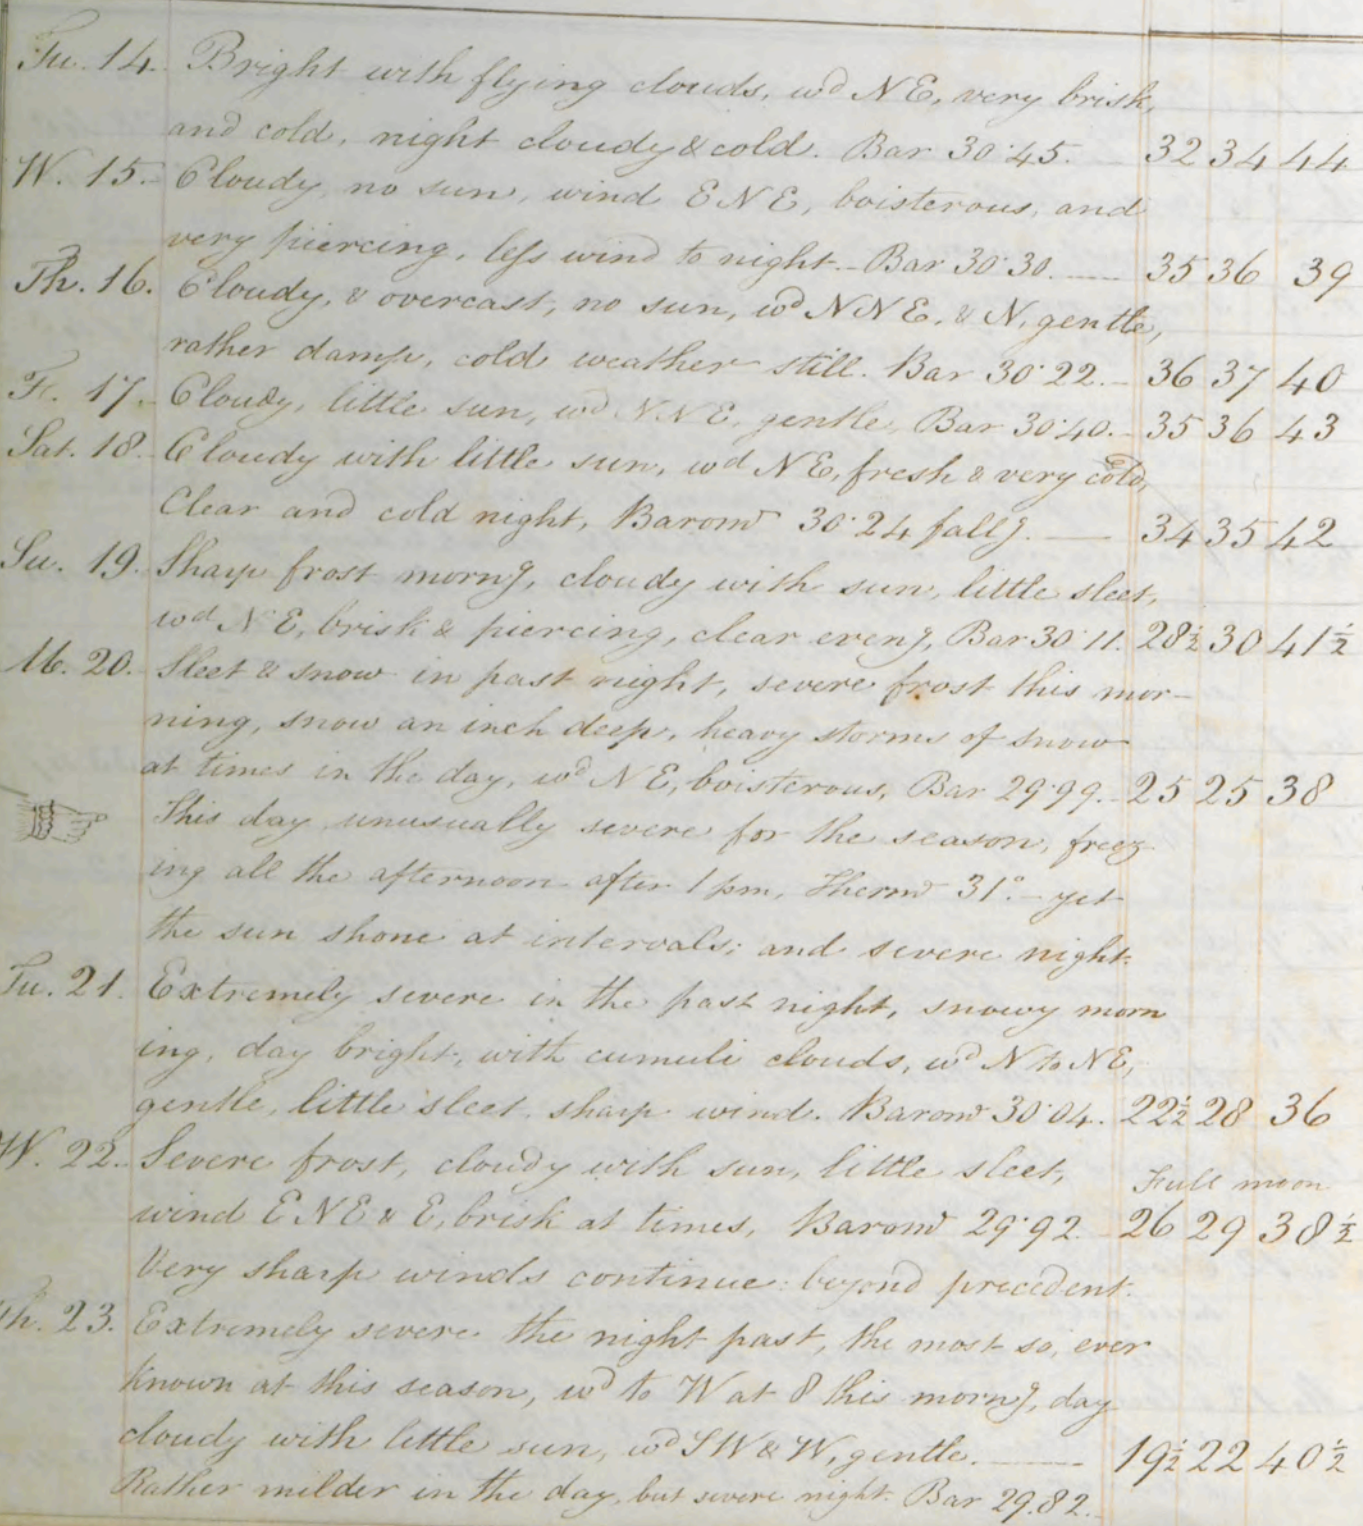 Tu. 14. Bright with flying clouds, wd NE, very brisk,
and cold, night cloudy & cold. Bar 30.45. 32 34 44
W. 15. Cloudy, no sun, wind ENE, boisterous, and
very piercing, less wind to night. - Bar 30.30. 35 36 39
Th. 16. Cloudy, & overcast, no sun, wd NNE. & N, gentle,
rather damp, cold weather still. Bar 30.22. - 36 37 40
Fr. 17. Cloudy, little sun, wd NNE, gentle, Bar 30.40. - 35 36 43
Sat. 18. Cloudy with little sun, wd NE, fresh & very cold,
Clear and cold night, Baromr 30.24 fallg. 34 35 42
Su. 19. Sharp frost morng, cloudy with sun, little sleet,
wd NE, brisk & piercing, clear eveng, Bar 30.11. 28½ 30 41½
M. 20. Sleet & snow in past night, severe frost this mor-
ning, snow an inch deep, heavy storms of snow
at times in the day, wd NE, boisterous, Bar 29.99. - 25 25 38
This day unusually severe for the season, freez-
ing all the afternoon after 1 pm, Thermr 31°. - yet
the sun shone at intervals; and severe night.
Tu. 21. Extremely severe in the past night, snowy morn
ing, day bright, with cumuli clouds, wd N to NE,
gentle, little sleet, sharp wind. Baromr 30.04. 22½ 28 36
W. 22. Severe frost, cloudy with sun, little sleet, Full moon
wind ENE & E, brisk at times, Baromr 29.92. 26 29 38½
Very sharp winds continue: beyond precedent.
Th. 23. Extremely severe the night past, the most so, ever
known at this season, wd to W at 8 this morng, day
cloudy with little sun, wd SW & W, gentle. 19½ 22 40½
Rather milder in the day, but severe night. Bar 29.82.